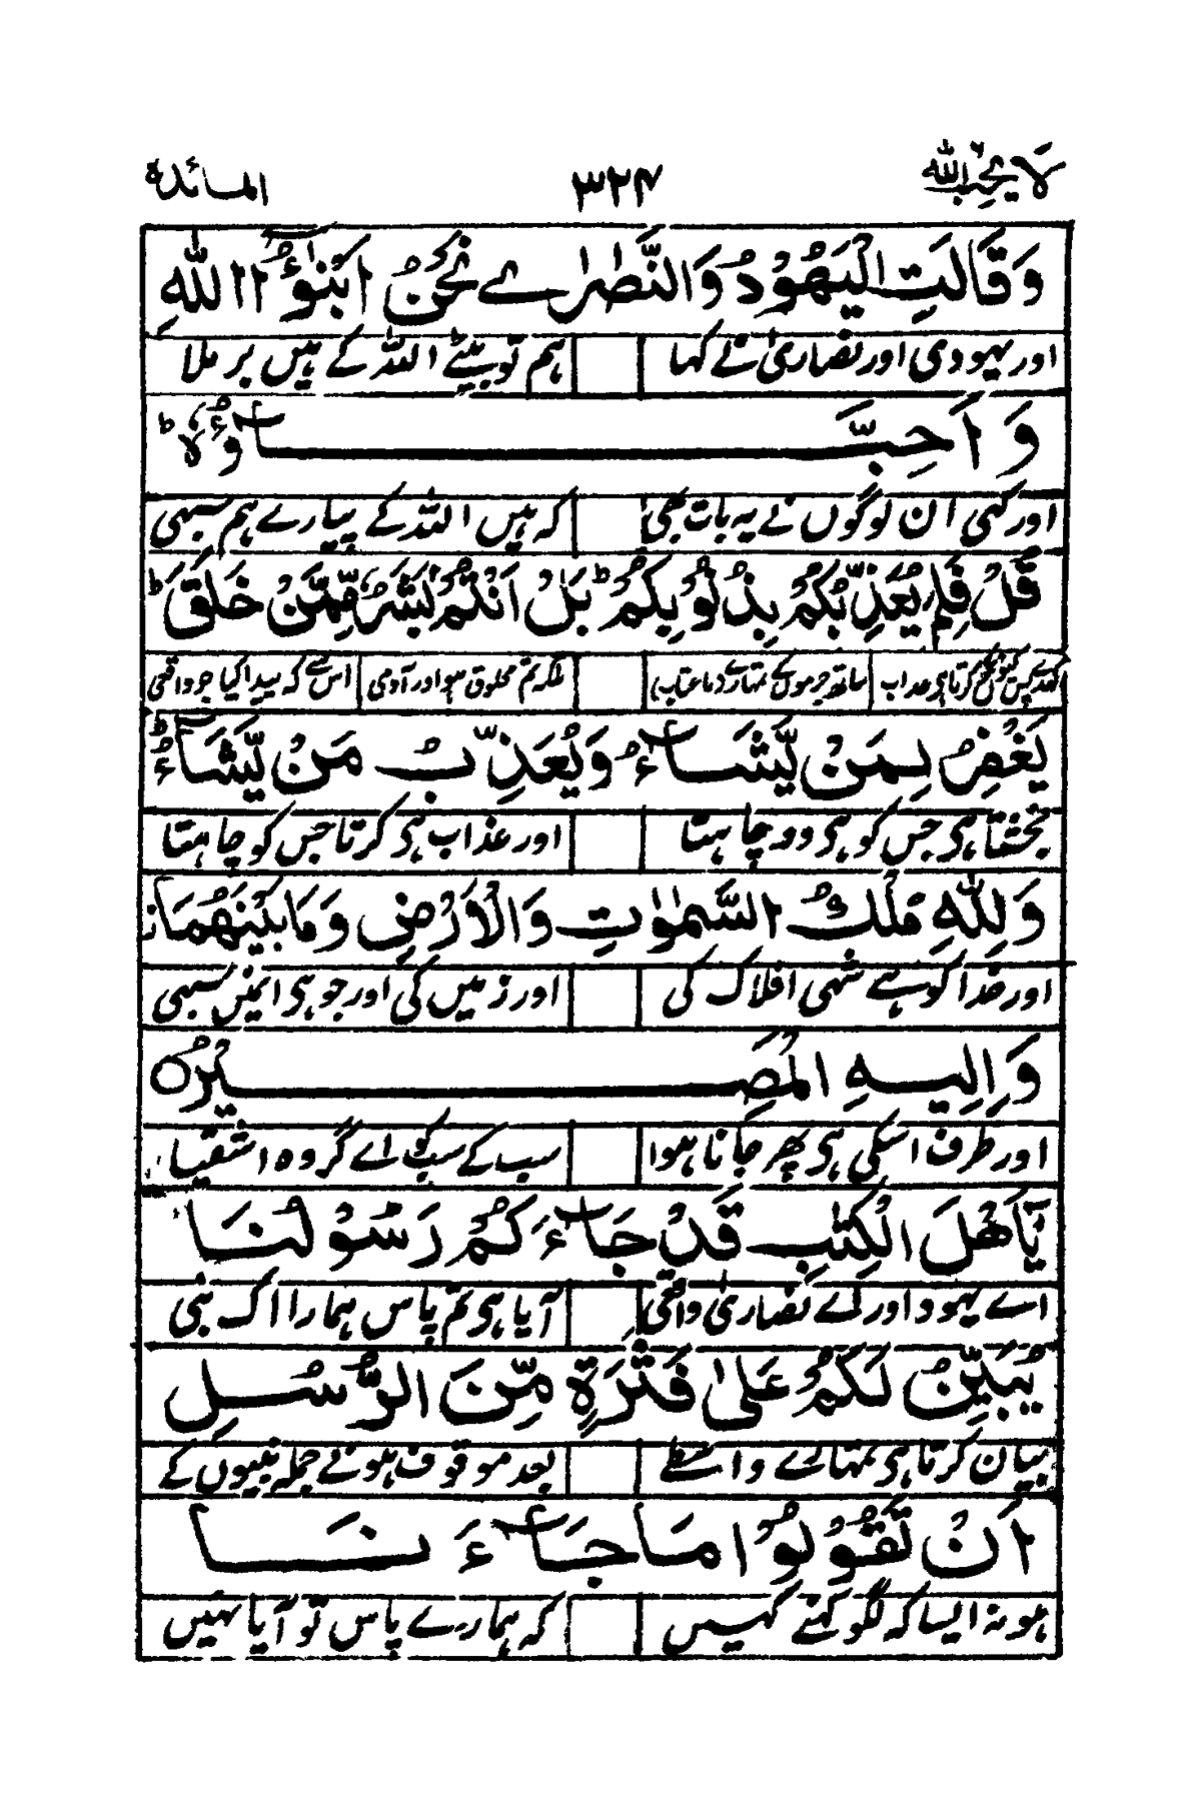 لَا یُحِبُّ اللّٰه ۳۲۴ المائدة
وَقَالَتِ الْیَهُوْدُ وَالنَّصٰرٰے نَحْنُ اَبْنٰٓؤُا اللّٰهِ
اور یہودی اور نصاریٰ نے کہا ہم تو بیٹے اللہ کے ہیں بر ملا
وَ اَحِبَّــآؤُهٗ ؕ
اور کہی ان لوگوں نے یہ بات بھی کہ ہیں اللہ کے پیارے ہم سبھی
قُلْ فَلِمَ یُعَذِّبُكُمْ بِذُنُوْبِكُمْ ؕ بَلْ اَنْتُمْ بَشَرٌ مِّمَّنْ خَلَقَ ؕ
کرتا ہی عذاب ساتھ جرموں کے تمہارے بلکہ تم مخلوق ہو اور آدمی اس سے کہ پیدا کیا جو واقعی
یَغْفِرُ لِمَنْ یَّشَآءُ وَیُعَذِّبُ مَنْ یَّشَآءُ ؕ
بخشتا ہی جس کو ہی وہ چاہتا اور عذاب ہی کرتا جس کو چاہتا
وَلِلّٰهِ مُلْكُ السَّمٰوٰتِ وَالْاَرْضِ وَمَا بَیْنَهُمَا ز
اور خدا کو ہے شہی افلاک کی اور زمیں کی اور جو ہی انمیں سبھی
وَاِلَیْهِ الْمَصِــیْرُ ○
اور طرف اسکی ہی پھر جانا ہوا سب کے سب کو اے گروہ اشقیا
یٰٓاَهْلَ الْكِتٰبِ قَدْ جَآءَكُمْ رَسُوْلُنَا
اے یہود اور اے نصاریٰ واقعی آیا ہی تم پاس ہمارا اک نبی
یُبَیِّنُ لَكُمْ عَلٰی فَتْرَةٍ مِّنَ الرُّسُلِ
بیان کرتا ہی تمہارے واسطے بعد موقوف ہونے جملہ نبیوں کے
اَنْ تَقُوْلُوْا مَا جَآءَنَــا
ہو نہ ایسا کہ لگو کہنے کہیں کہ ہمارے پاس تو آیا نہیں